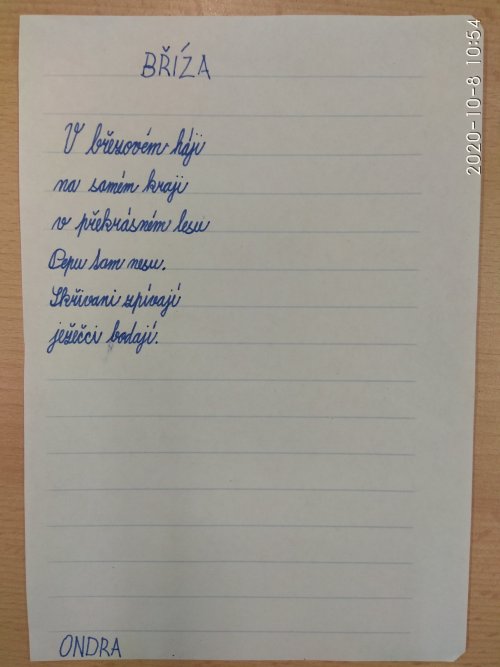 BŘÍZA
V březovém háji
na samém kraji
v překrásném lesu
Pepu tam nesu.
Skřivani zpívají
ježečci bodají.
ONDRA
2020-10-8 10:54